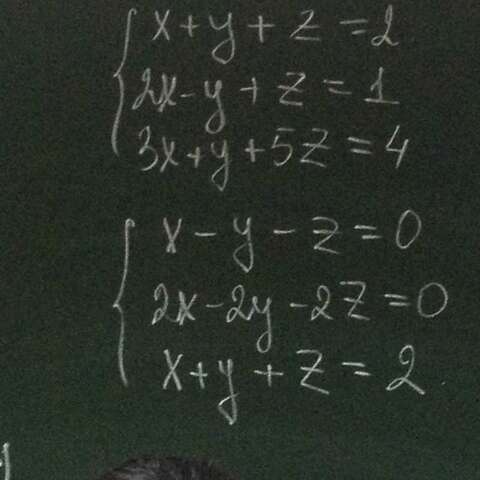 x+y+z=2
2x-y+z=1
3x+y+5z=4
x-y-z=0
2x-2y-2z=0
x+y+z=2